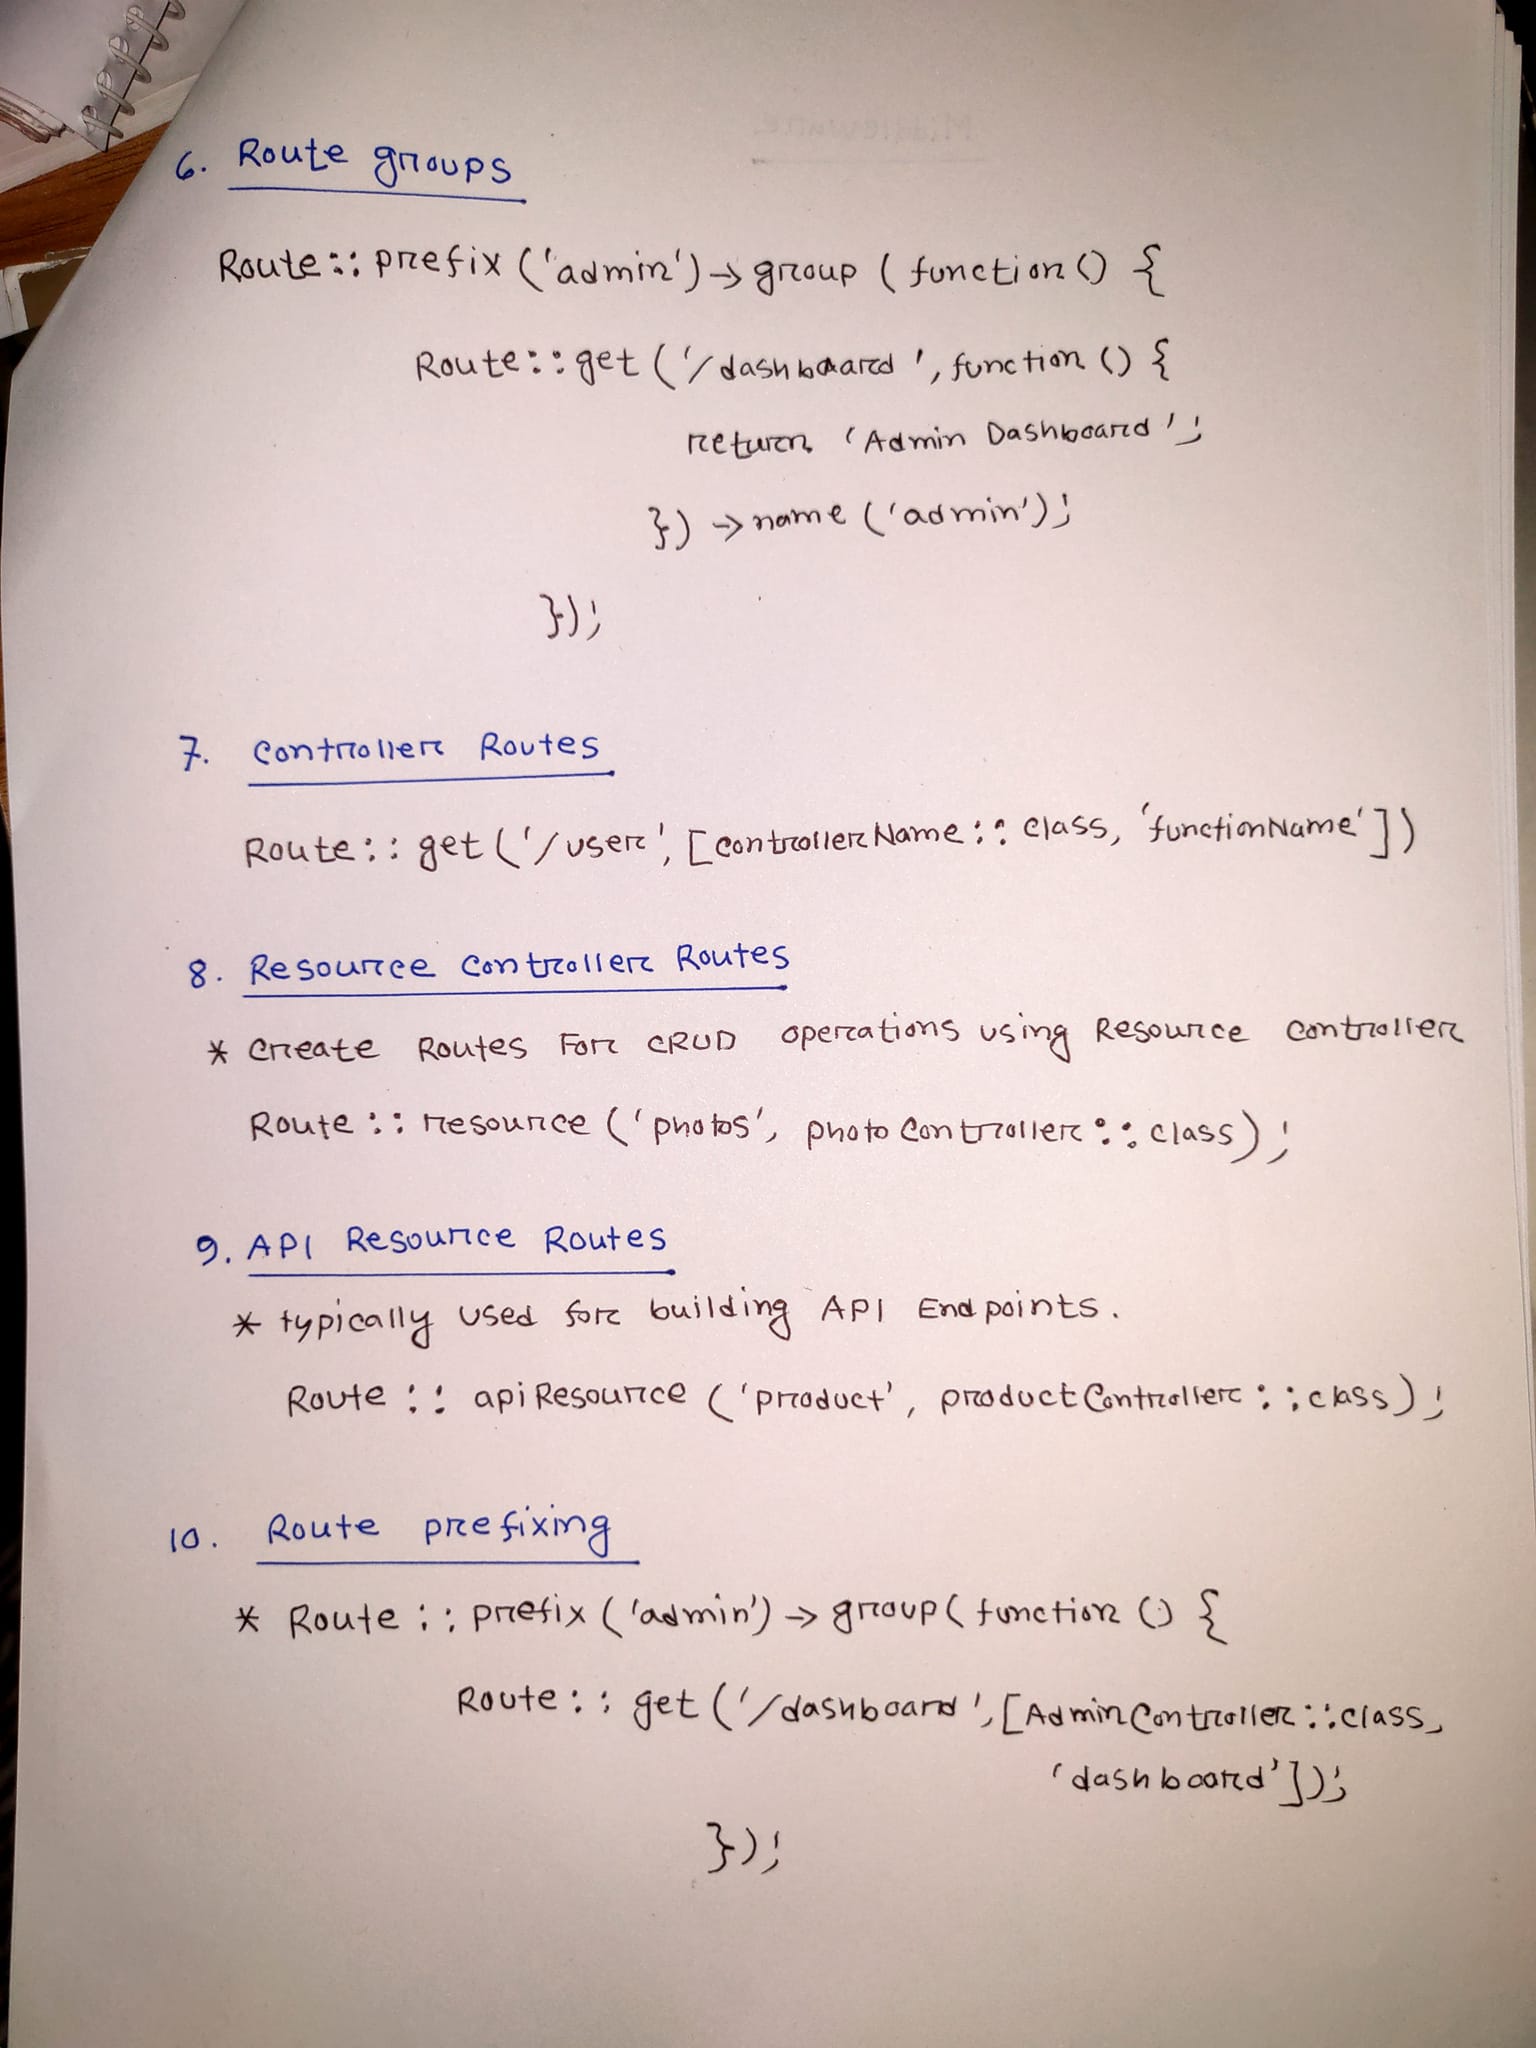 6. Route groups
Route::prefix('admin')->group(function() {
Route::get('/dashboard', function() {
return 'Admin Dashboard';
})->name('admin');
});
7. Controller Routes
Route::get('/user', [controllerName::class, 'functionName'])
8. Resource Controller Routes
* Create Routes For CRUD operations using Resource controller
Route::resource('photos', photoController::class);
9. API Resource Routes
* typically used for building API Endpoints.
Route::apiResource('product', productController::class);
10. Route prefixing
* Route::prefix('admin')->group(function() {
Route::get('/dashboard', [AdminController::class,
'dashboard']);
});